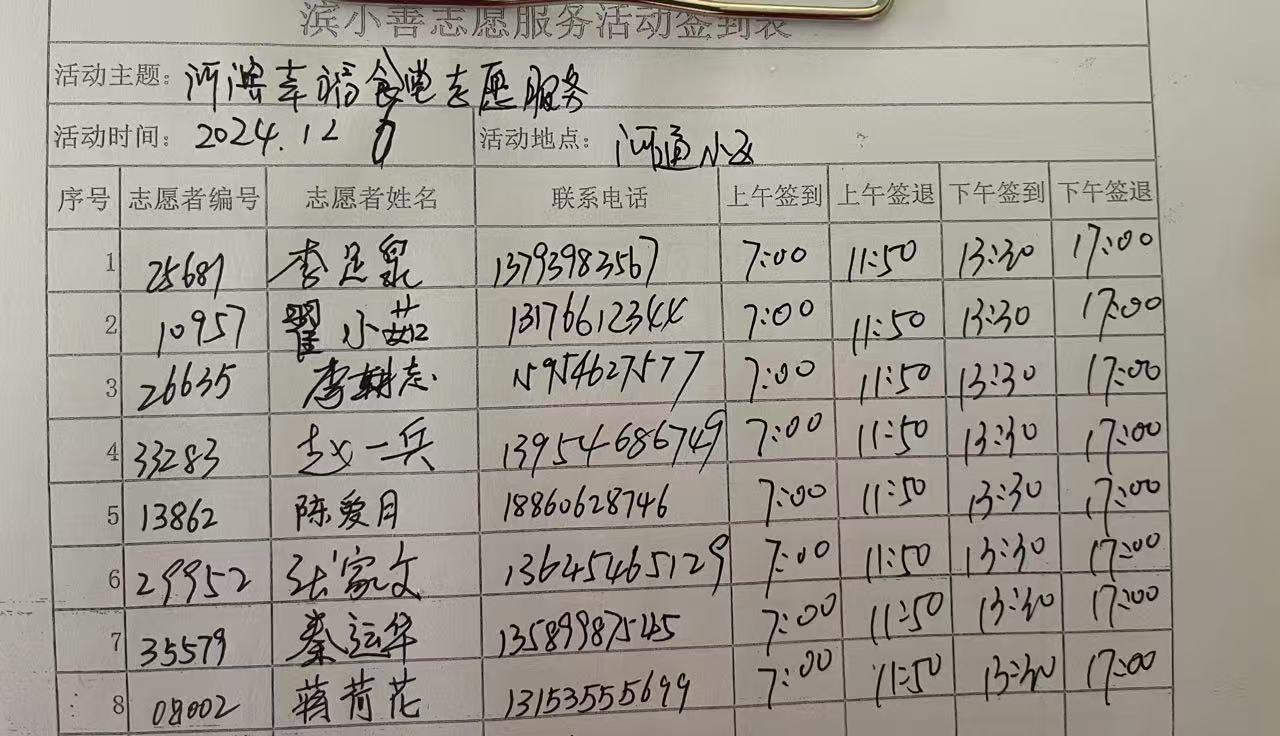 滨小善志愿服务活动签到表
活动主题: 河滨幸福食堂志愿服务
活动时间: 2024.12 活动地点: 河通小区
序号 志愿者编号 志愿者姓名 联系电话 上午签到 上午签退 下午签到 下午签退
1 25681 李足泉 13793983567 7:00 11:50 13:30 17:00
2 10957 翟小茹 13176612344 7:00 11:50 13:30 17:00
3 26635 李朝志 15954627577 7:00 11:50 13:30 17:00
4 33283 赵一兵 13954686749 7:00 11:50 13:30 17:00
5 13862 陈爱月 18860628746 7:00 11:50 13:30 17:00
6 29952 张家文 13645465129 7:00 11:50 13:30 17:00
7 35579 秦运华 13589987545 7:00 11:50 13:30 17:00
8 08002 蒋荷花 13153555699 7:00 11:50 13:30 17:00